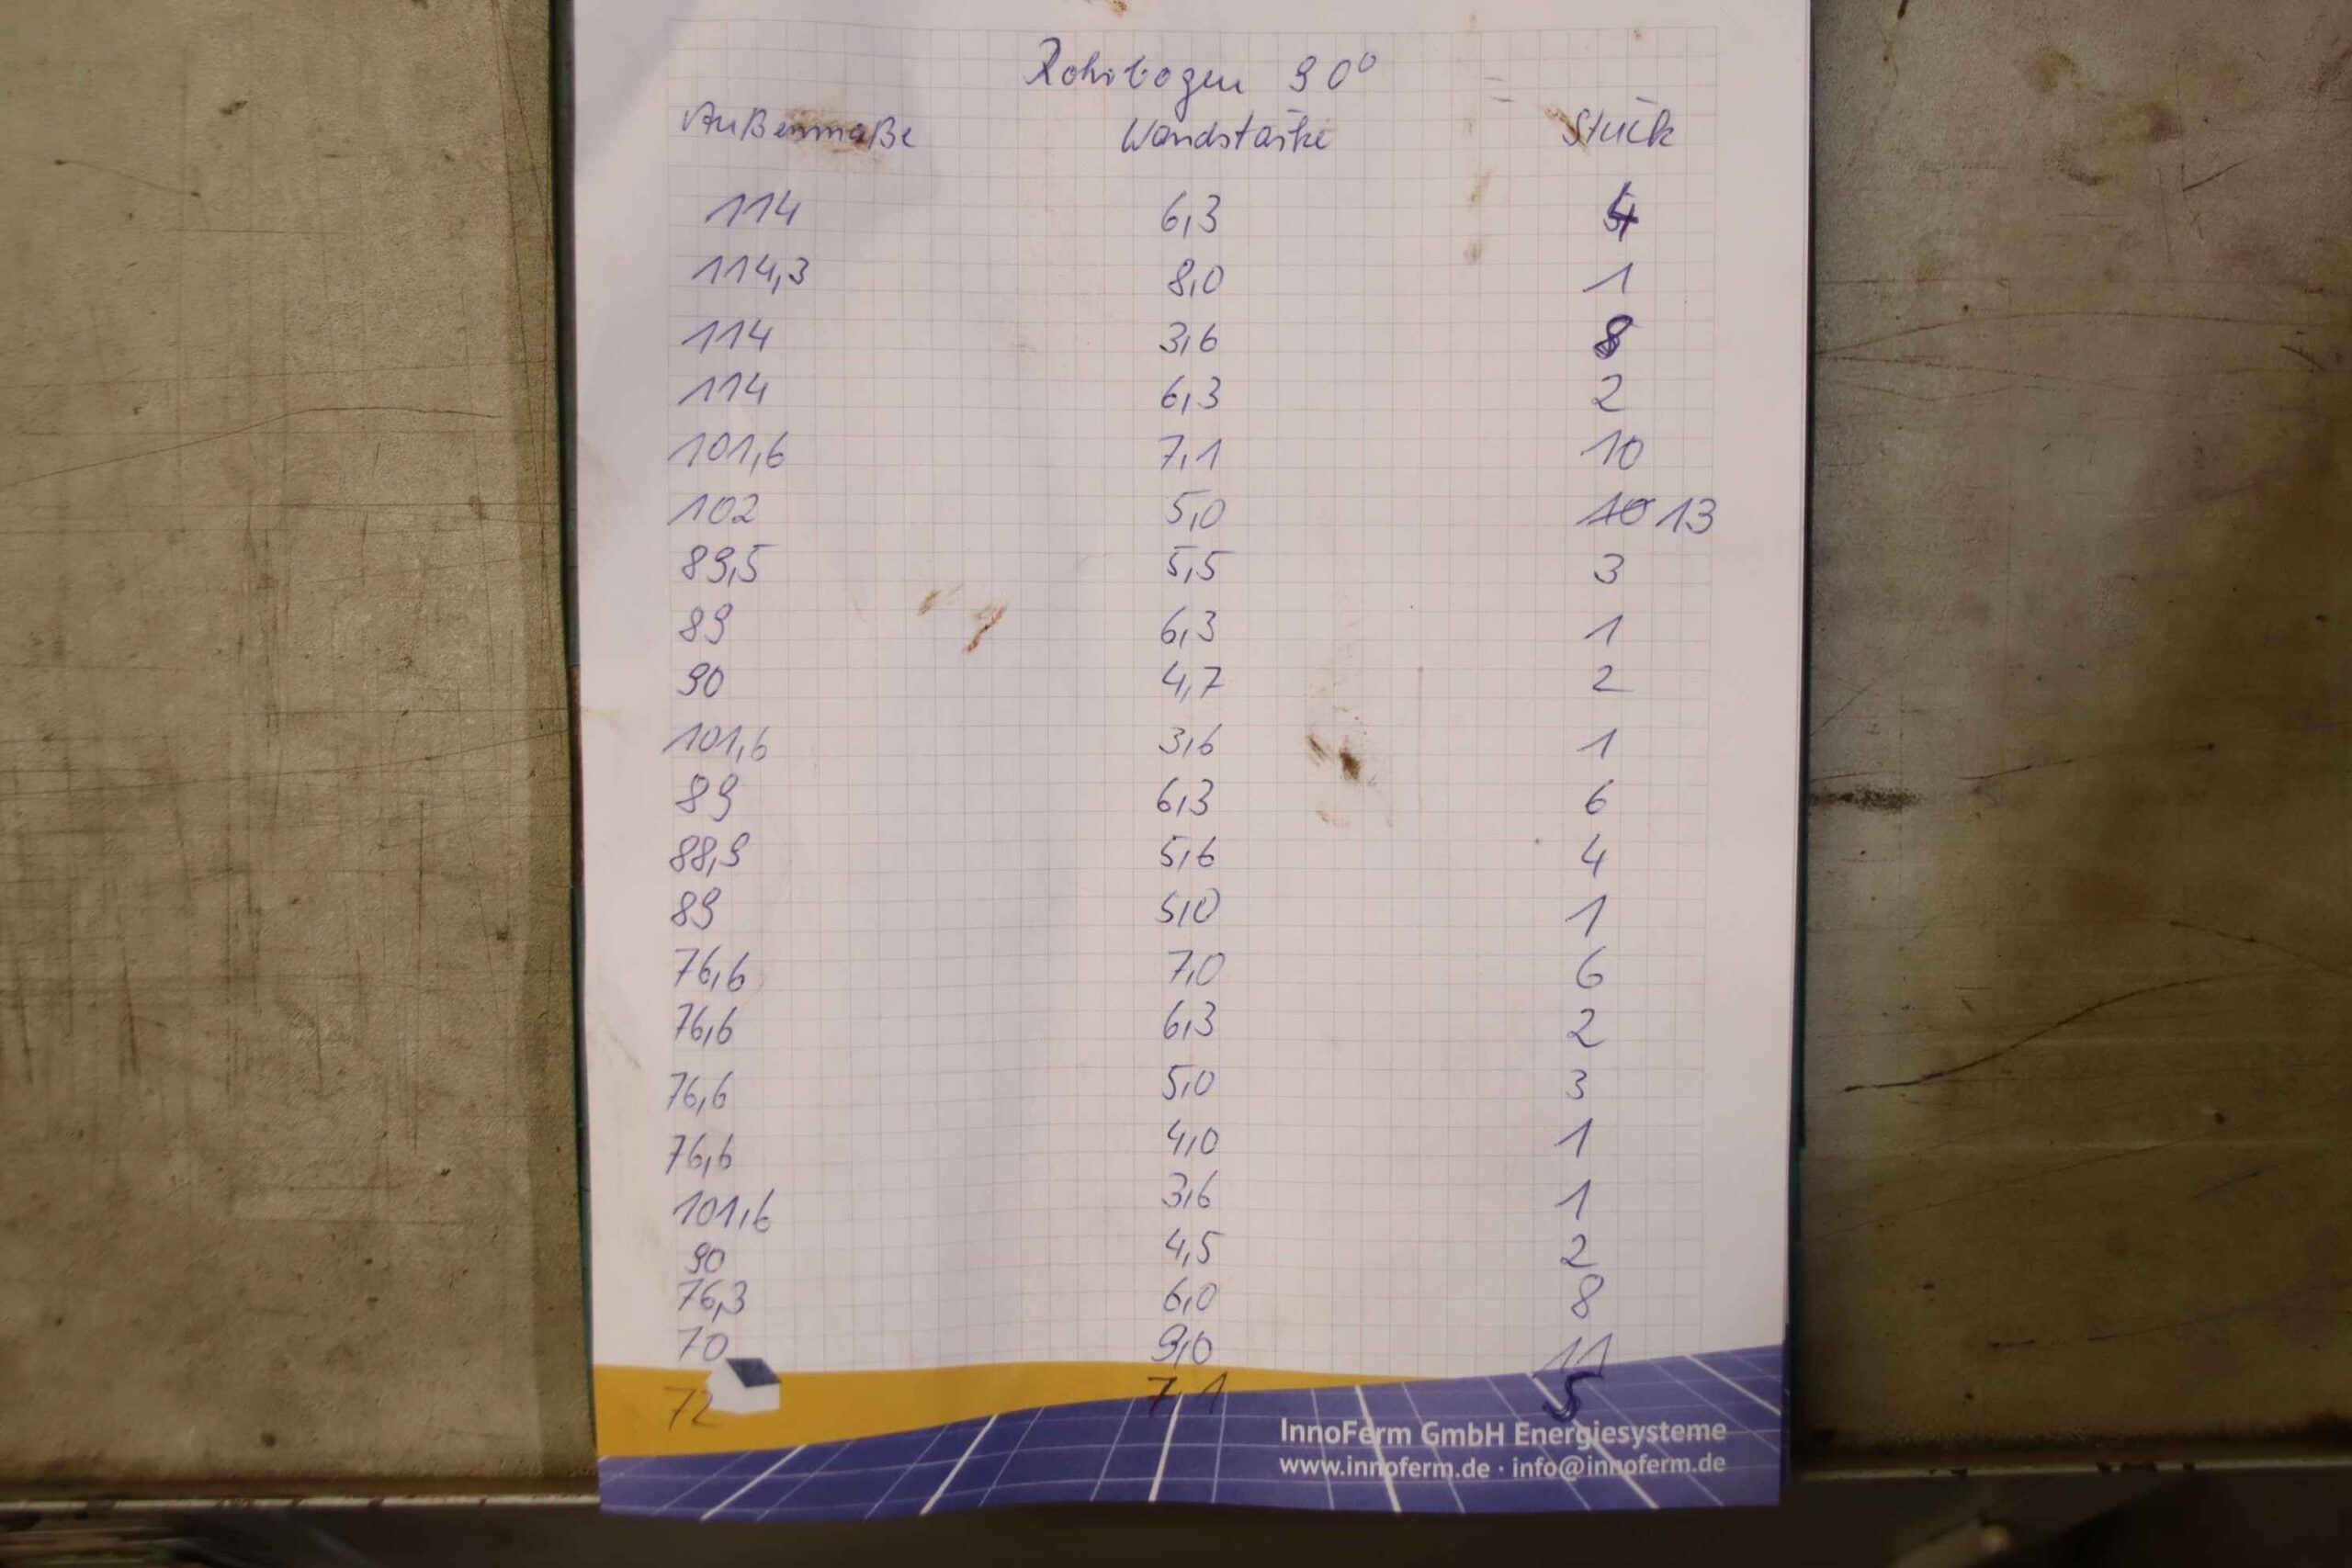 Rohrbogen 90°
Außenmaße Wandstärke Stück
114 6,3 4
114,3 8,0 1
114 3,6 8
114 6,3 2
101,6 7,1 10
102 5,0 10 13
89,5 5,5 3
89 6,3 1
90 4,7 2
101,6 3,6 1
89 6,3 6
88,9 5,6 4
89 5,0 1
76,6 7,0 6
76,6 6,3 2
76,6 5,0 3
76,6 4,0 1
101,6 3,6 1
90 4,5 2
76,3 6,0 8
70 9,0 11
72 7,1 5
InnoFerm GmbH Energiesysteme
www.innoferm.de · info@innoferm.de